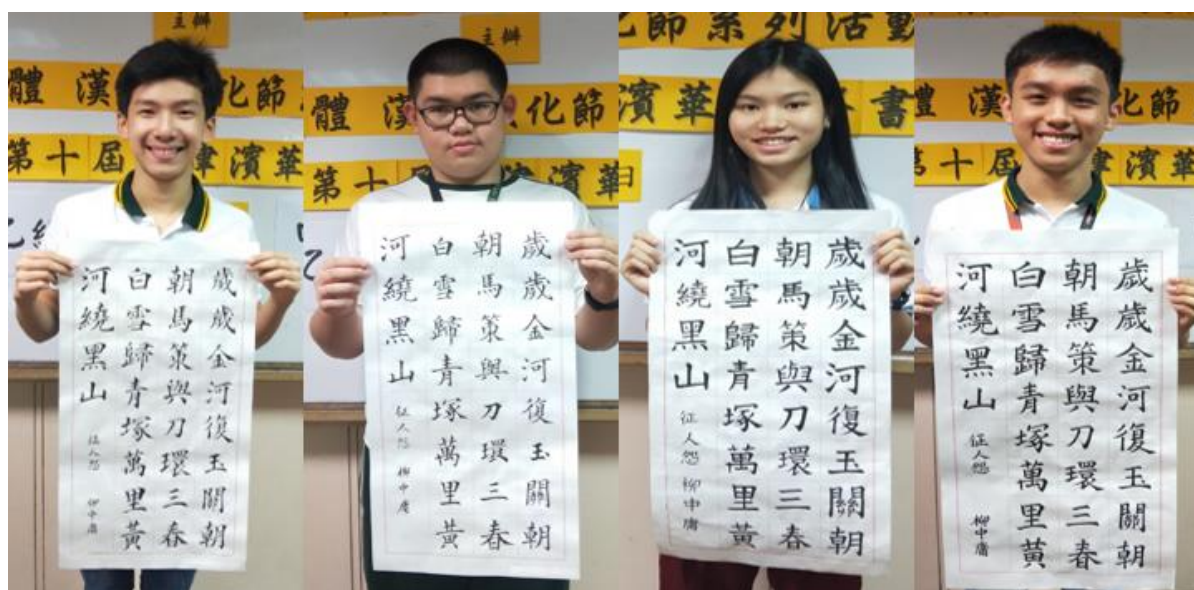 主辦
體 漢 化節
第十屆 律濱華
歲歲金河復玉關朝
朝馬策與刀環三春
白雪歸青塚萬里黃
河繞黑山
征人怨 柳中庸
主辦
體 漢 化節
第十 濱華
歲歲金河復玉關朝
朝馬策與刀環三春
白雪歸青塚萬里黃
河繞黑山
征人怨 柳中庸
化節系列活動
濱華 書
歲歲金河復玉關朝
朝馬策與刀環三春
白雪歸青塚萬里黃
河繞黑山
征人怨 柳中庸
體 漢 化節
十屆 律濱華
歲歲金河復玉關朝
朝馬策與刀環三春
白雪歸青塚萬里黃
河繞黑山
征人怨 柳中庸